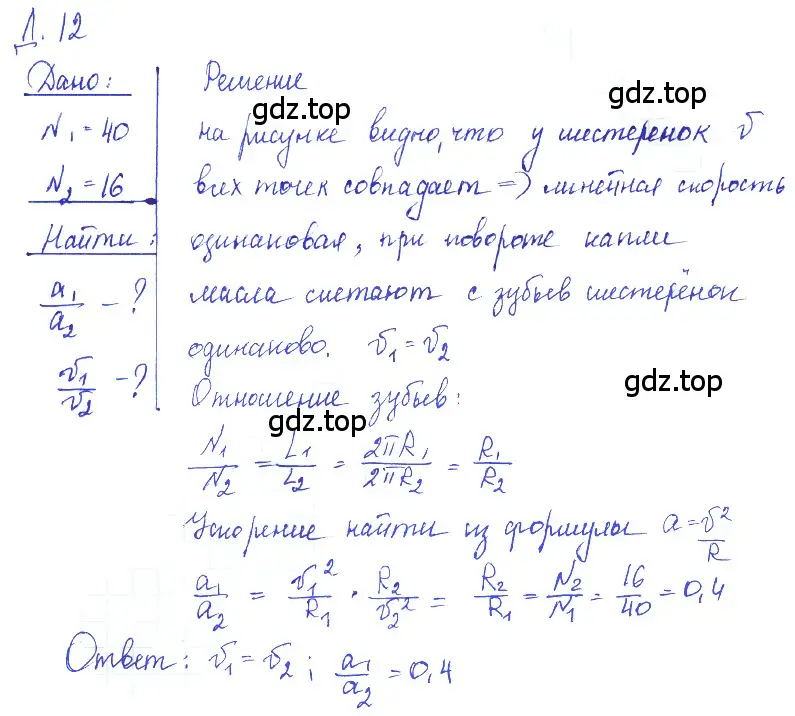 Д. 12
Дано:
N₁ = 40
N₂ = 16
Найти:
a₁/a₂ - ?
v₁/v₂ - ?
Решение
gdz.top
gdz.top
на рисунке видно, что у шестеренок v
всех точек совпадает => линейная скорость
одинаковая, при повороте капли
масла слетают с зубьев шестерёнок
одинаково. v₁ = v₂
gdz.top
gdz.top
Отношение зубьев:
N₁/N₂ = L₁/L₂ = 2πR₁/2πR₂ = R₁/R₂
Ускорение найти из формулы a = v²/R
a₁/a₂ = v₁²/R₁ · R₂/v₂² = R₂/R₁ = N₂/N₁ = 16/40 = 0,4
Ответ: v₁ = v₂; a₁/a₂ = 0,4